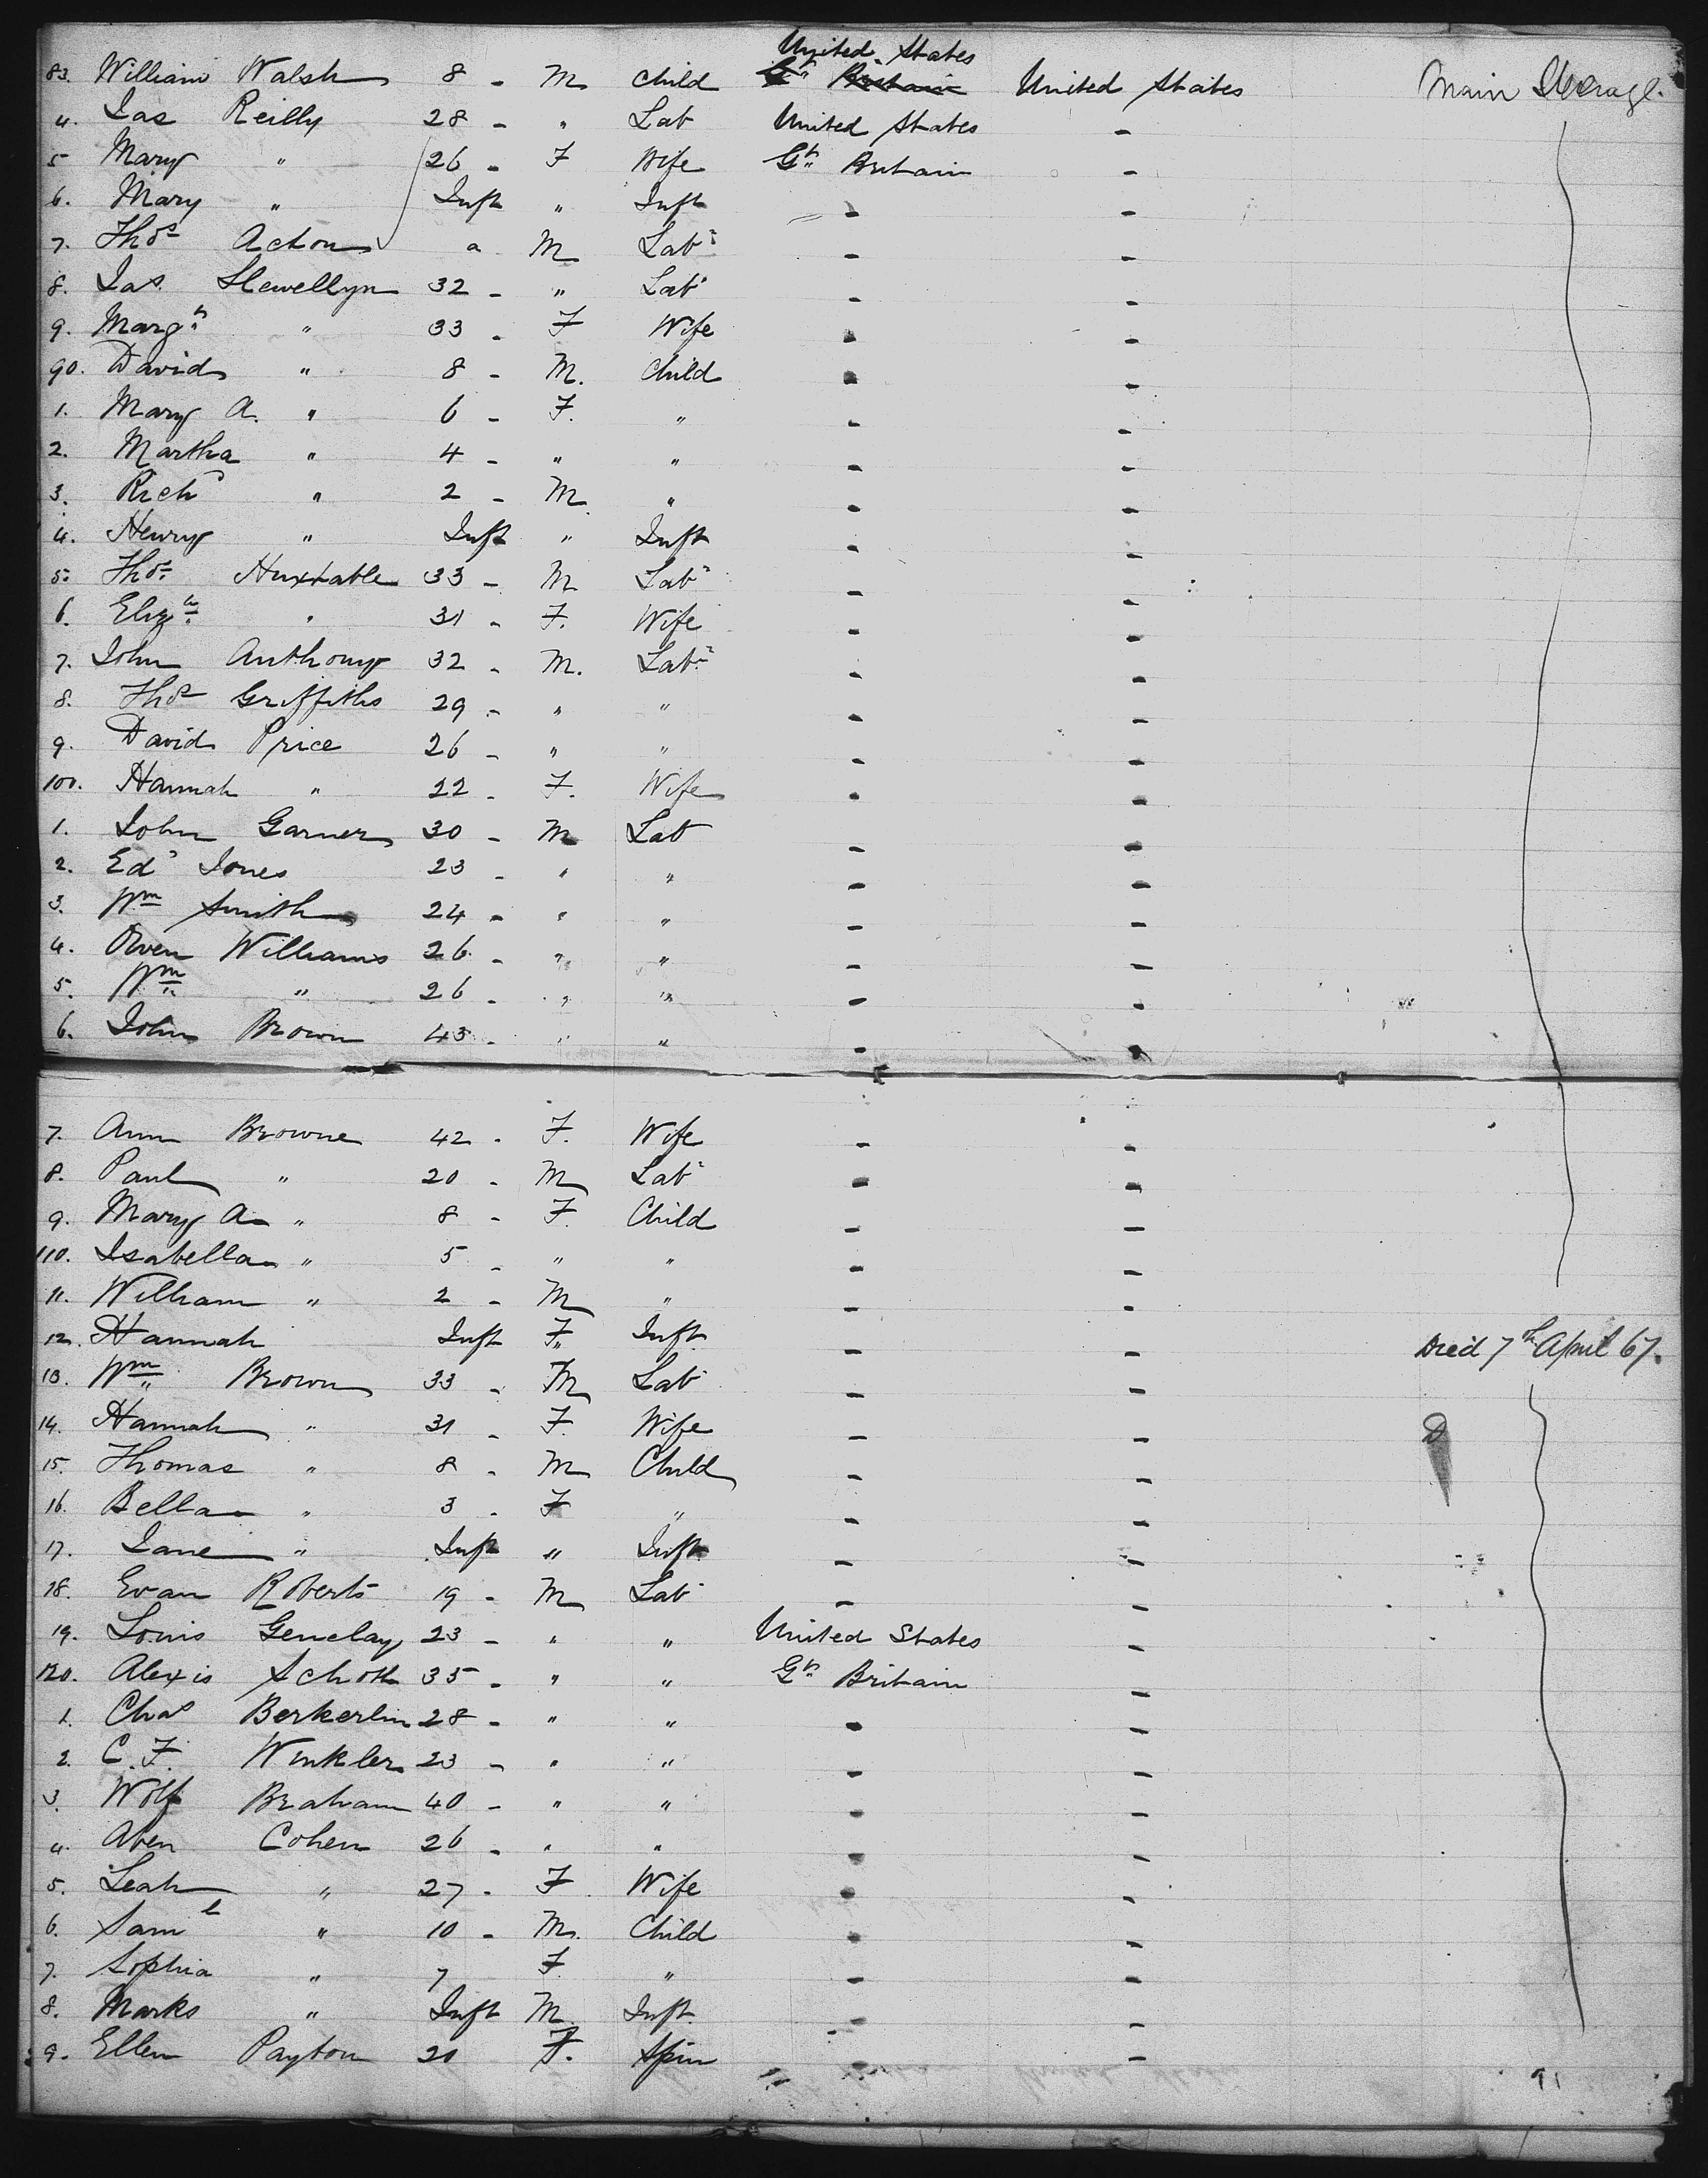 United States
83. William Walsh 8 - M Child Gt Britain United States Main Steerage.
4. Jas Reilly 28 - " Lab United States -
5 Mary " 26 - F Wife Gt Britain -
6. Mary " Inft " Inft - -
7. Thos Acton a M Labr - -
8. Jas. Llewellyn 32 - " Labr - -
9. Margt " 33 - F Wife - -
90. David " 8 - M. Child - -
1. Mary A. " 6 - F. " - -
2. Martha " 4 - " " - -
3. Richd " 2 - M " - -
4. Henry " Inft " Inft - -
5. Thos Huxtable 33 - M Labr - -
6. Elizth " 31 - F. Wife - -
7. John Anthony 32 - M. Labr - -
8. Thos Griffiths 29 - " " - -
9. David Price 26 - " " - -
100. Hannah " 22 - F. Wife - -
1. John Garner 30 - M Lab - -
2. Edd Jones 23 - " " - -
3. Wm Smith 24 - " " - -
4. Owen Williams 26 - " " - -
5. Wm " 26 - " " - -
6. John Brown 43 - " " - -
7. Ann Browne 42 - F. Wife - -
8. Paul " 20 - M Labr - -
9. Mary A " 8 - F. Child - -
110. Isabella " 5 - " " - -
11. William " 2 - M " - -
12. Hannah Inft F. Inft - - Died 7th April 67.
13. Wm Brown 33 - M Lab - -
14. Hannah " 31 - F. Wife - - D
15. Thomas " 8 - M Child - -
16. Bella " 3 - F " - -
17. Jane " Inft " Inft - -
18. Evan Roberts 19 - M Lab - -
19. Louis Genclay 23 - " " United States -
120. Alexis Schott 35 - " " Gt Britain -
1. Chas Berkerlin 28 - " " - -
2. C. F. Winkler 23 - " " - -
3. Wolf Braham 40 - " " - -
4. Aben Cohen 26 - " " - -
5. Leah " 27 - F Wife - -
6. Saml " 10 - M. Child - -
7. Sophia " 7 F. " - -
8. Marks " Inft M. Inft. - -
9. Ellen Payton 20 F. Spin - -